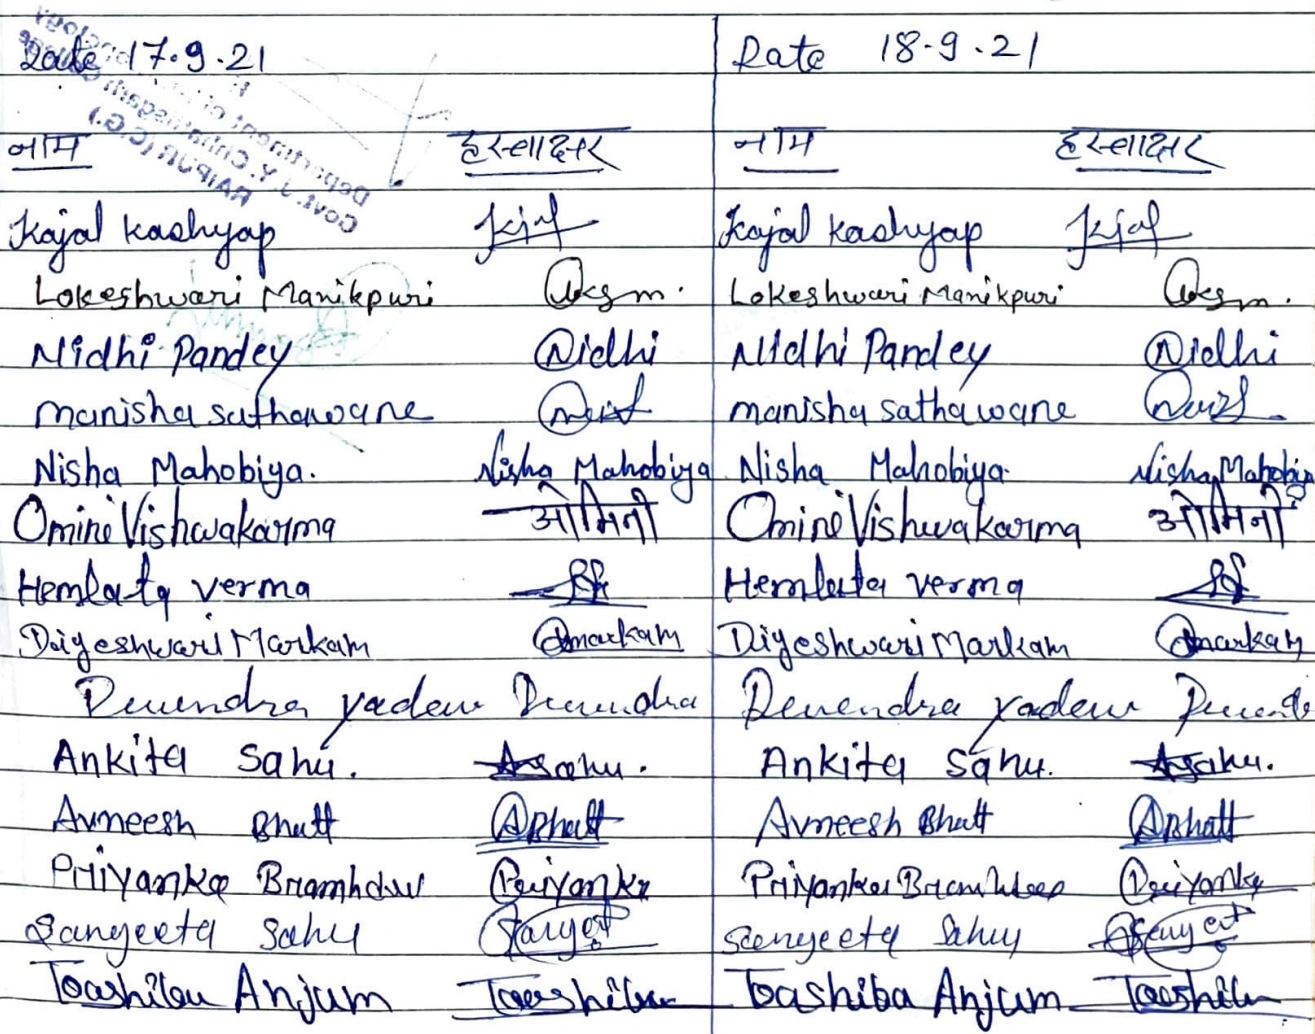 Date 17.9.21
नाम हस्ताक्षर
Kajal kashyap
Lokeshwari Manikpuri
Nidhi Pandey Nidhi
manisha sathawane
Nisha Mahobiya. Nisha Mahobiya
Omine Vishwakarma ओमिनी
Hemlata verma
Digeshwari Markam Dmarkam
Devendra yadew Devendra
Ankita Sahu. Asahu.
Avneesh Bhatt ABhatt
Priyanka Priyanka
Sangeeta Sahu
Toashiba Anjum
Date 18.9.21
नाम हस्ताक्षर
Kajal kashyap
Lokeshwari Manikpuri
Nidhi Pandey Nidhi
manisha sathawane
Nisha Mahobiya. Nisha Mahobiya
Omine Vishwakarma ओमिनी
Hemlata verma
Digeshwari Markam Dmarkam
Devendra yadew
Ankita Sahu. Asahu.
Avneesh Bhatt ABhatt
Priyanka Priyanka
Sangeeta Sahu
Toashiba Anjum
Department of
Govt. J. Y. Chhattisgarh College
RAIPUR (C.G.)